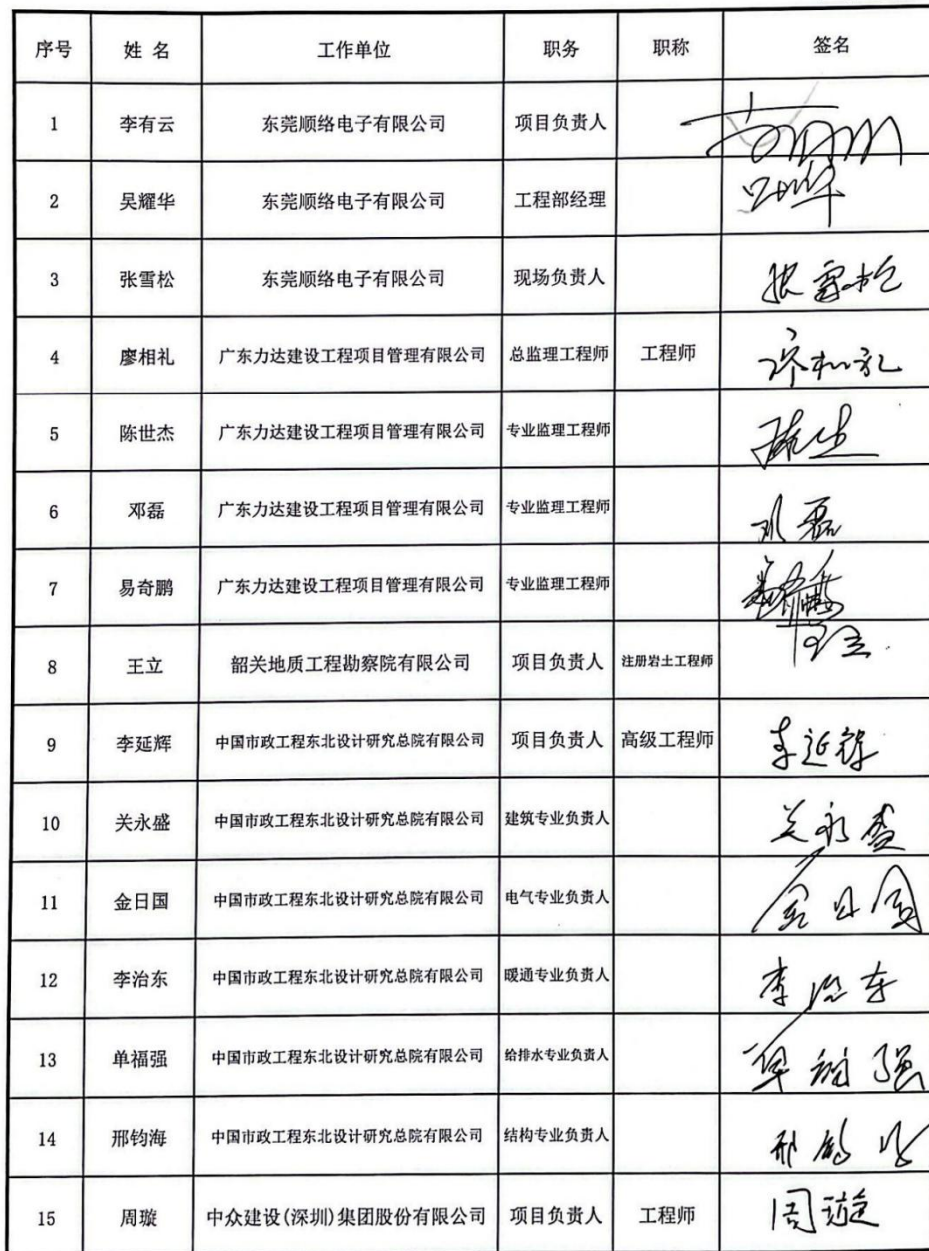 序号 姓名 工作单位 职务 职称 签名
1 李有云 东莞顺络电子有限公司 项目负责人
2 吴耀华 东莞顺络电子有限公司 工程部经理
3 张雪松 东莞顺络电子有限公司 现场负责人 张雪松
4 廖相礼 广东力达建设工程项目管理有限公司 总监理工程师 工程师 廖相礼
5 陈世杰 广东力达建设工程项目管理有限公司 专业监理工程师
6 邓磊 广东力达建设工程项目管理有限公司 专业监理工程师 邓磊
7 易奇鹏 广东力达建设工程项目管理有限公司 专业监理工程师
8 王立 韶关地质工程勘察院有限公司 项目负责人 注册岩土工程师
9 李延辉 中国市政工程东北设计研究总院有限公司 项目负责人 高级工程师 李延辉
10 关永盛 中国市政工程东北设计研究总院有限公司 建筑专业负责人 关永盛
11 金日国 中国市政工程东北设计研究总院有限公司 电气专业负责人 金日国
12 李治东 中国市政工程东北设计研究总院有限公司 暖通专业负责人 李治东
13 单福强 中国市政工程东北设计研究总院有限公司 给排水专业负责人 单福强
14 邢钧海 中国市政工程东北设计研究总院有限公司 结构专业负责人 邢钧海
15 周璇 中众建设(深圳)集团股份有限公司 项目负责人 工程师 周璇